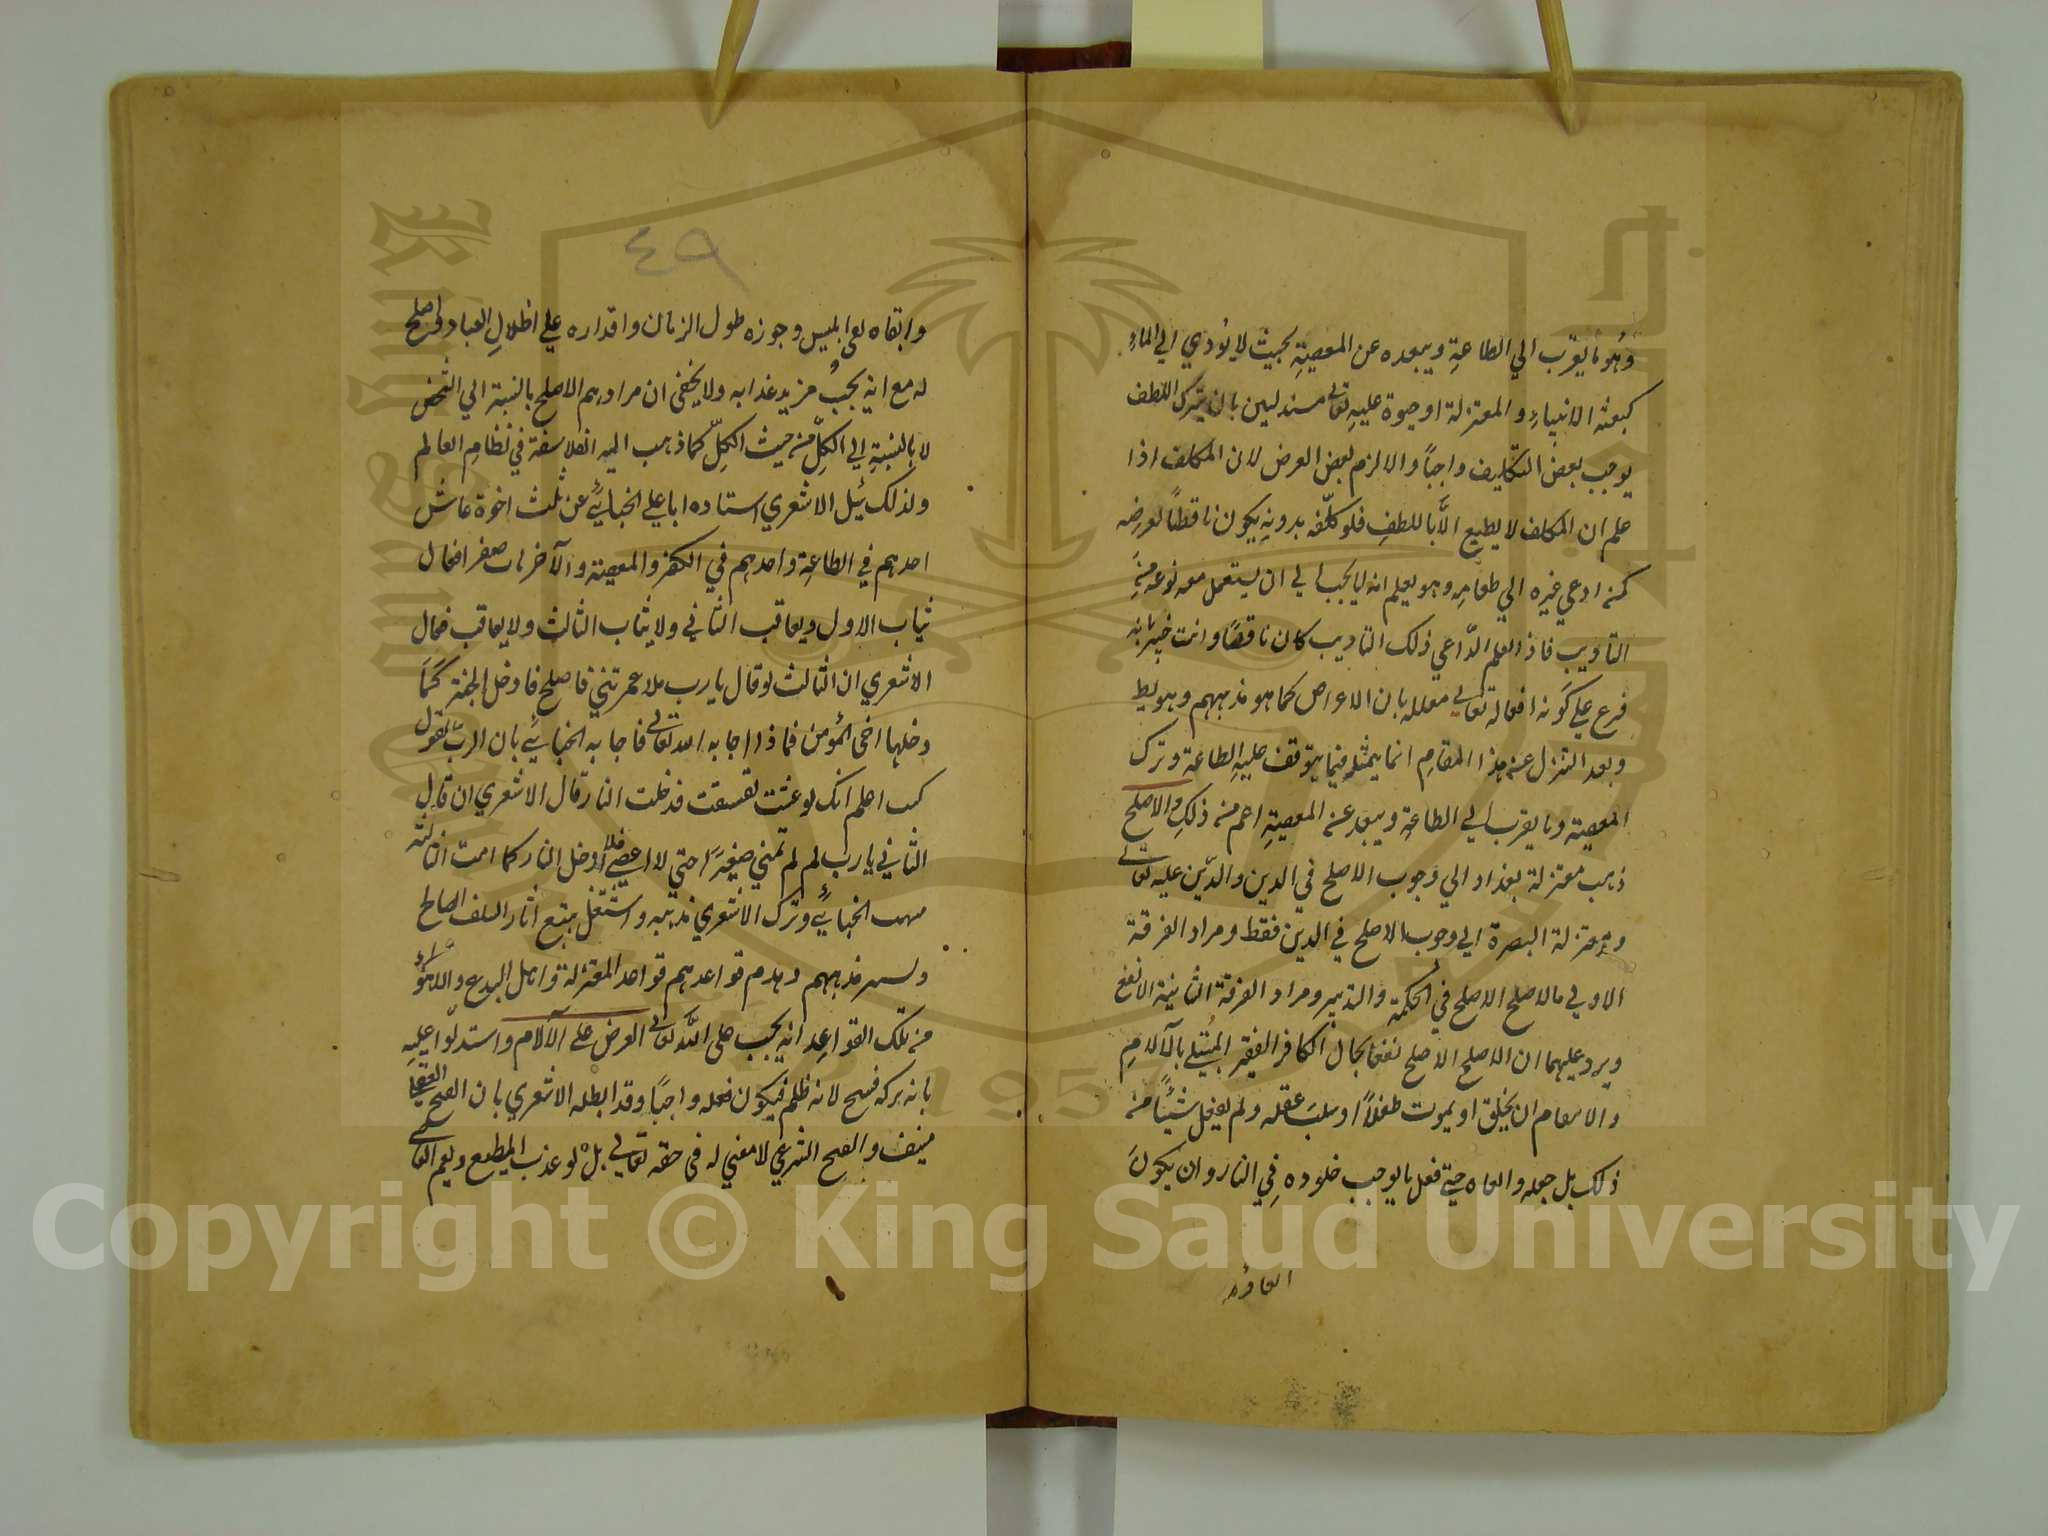 وهو ما يقرب الي الطاعة ويبعده عن المعصية بحيث لا يؤدي الي الالجاء
كبعثة الانبياء والمعتزلة اوجبوه عليه تعالى مستدلين بان ترك اللطف
يوجب بعض التكاليف واجبا والا لزم بعض الغرض لان المكلف اذا
علم ان المكلف لا يطيع الا باللطف فلو كلفه بدونه يكون ناقضا لغرضه
كمن ادعي غيره الي طعامه وهو يعلم انه لا يجب الي ان يستعمل معه نوعه من
التاديب فاذا لم الداعي ذلك التاديب كان ناقضا وانت خبير بانه
فرع علي كونه افعاله تعالي معلله بان الاعراض كما هو مذهبهم وهو بط
وبعد التنزل عن هذا المقام انما يمثله فيما يتوقف عليه الطاعة وترك
المعصية وما يقرب الي الطاعة ويبعد عن المعصية اعم من ذلك والاصلح
ذهب معتزلة بغداد الي وجوب الاصلح في الدين والدين عليه تعالى
ومعتزلة البصرة الي وجوب الاصلح في الدين فقط ومراد الفرقة
الاولي مالاصلح الاصلح في الحكمة والتدبير ومراد الفرقة الثانية الانفع
ويرد عليهما ان الاصلح الاصلح نفعا بحال الكافر الفقير المبتلي بالآلام
والاسقام ان يخلق او يموت طفلا او سلب عقله ولم يفعل شيئا من
ذلك بل جعله وابقاه حتي فعل ما يوجب خلوده في النار وان يكون
ابقاؤه
٤٩
وابقاه ابليس وجوزه طول الزمان واقداره علي اظلال العباد اصلح
له مع انه يجب مزيد عذابه ولا يخفى ان مرادهم الاصلح بالنسبة الي الشخص
لا بالنسبة الي الكل من حيث الكل كما ذهب اليه الفلاسفة في نظام العالم
ولذلك سئل الاشعري استاده ابا علي الجبائي عن ثلث اخوة عاش
احدهم في الطاعة واحدهم في الكفر والمعصية والآخر مات صغيرا فقال
يثاب الاول ويعاقب الثاني ولا يثاب الثالث ولا يعاقب فقال
الاشعري ان الثالث لو قال يا رب هلا عمرتني فاصلح فادخل الجنة كما
دخلها اخي المؤمن فماذا اجابه الله تعالى فاجابه الجبائي بان الرب يقول
كنت اعلم انك لو عشت لفسقت فدخلت النار قال الاشعري ان قال
الثاني يا رب لم لم تمتني صغيرا حتي لا اعصي فلا ادخل النار كما امت الثالث
فبهت الجبائي وترك الاشعري مذهبه واشتغل بتتبع آثار السلف الصالح
ونشر مذهبهم وهدم قواعدهم قواعد المعتزلة واهل البدع والاهواء
من تلك القواعد انه يجب على الله تعالى العرض على الآلام واستدلوا عليه
بانه تركه قبيح لانه ظلم فيكون فعله واجبا وقد ابطله الاشعري بان القبح العقلي
منيف والقبح الشرعي لا معني له في حقه تعالي بل لو عذب المطيع ونعم العاصي
Copyright © King Saud University
King Saud University
1957